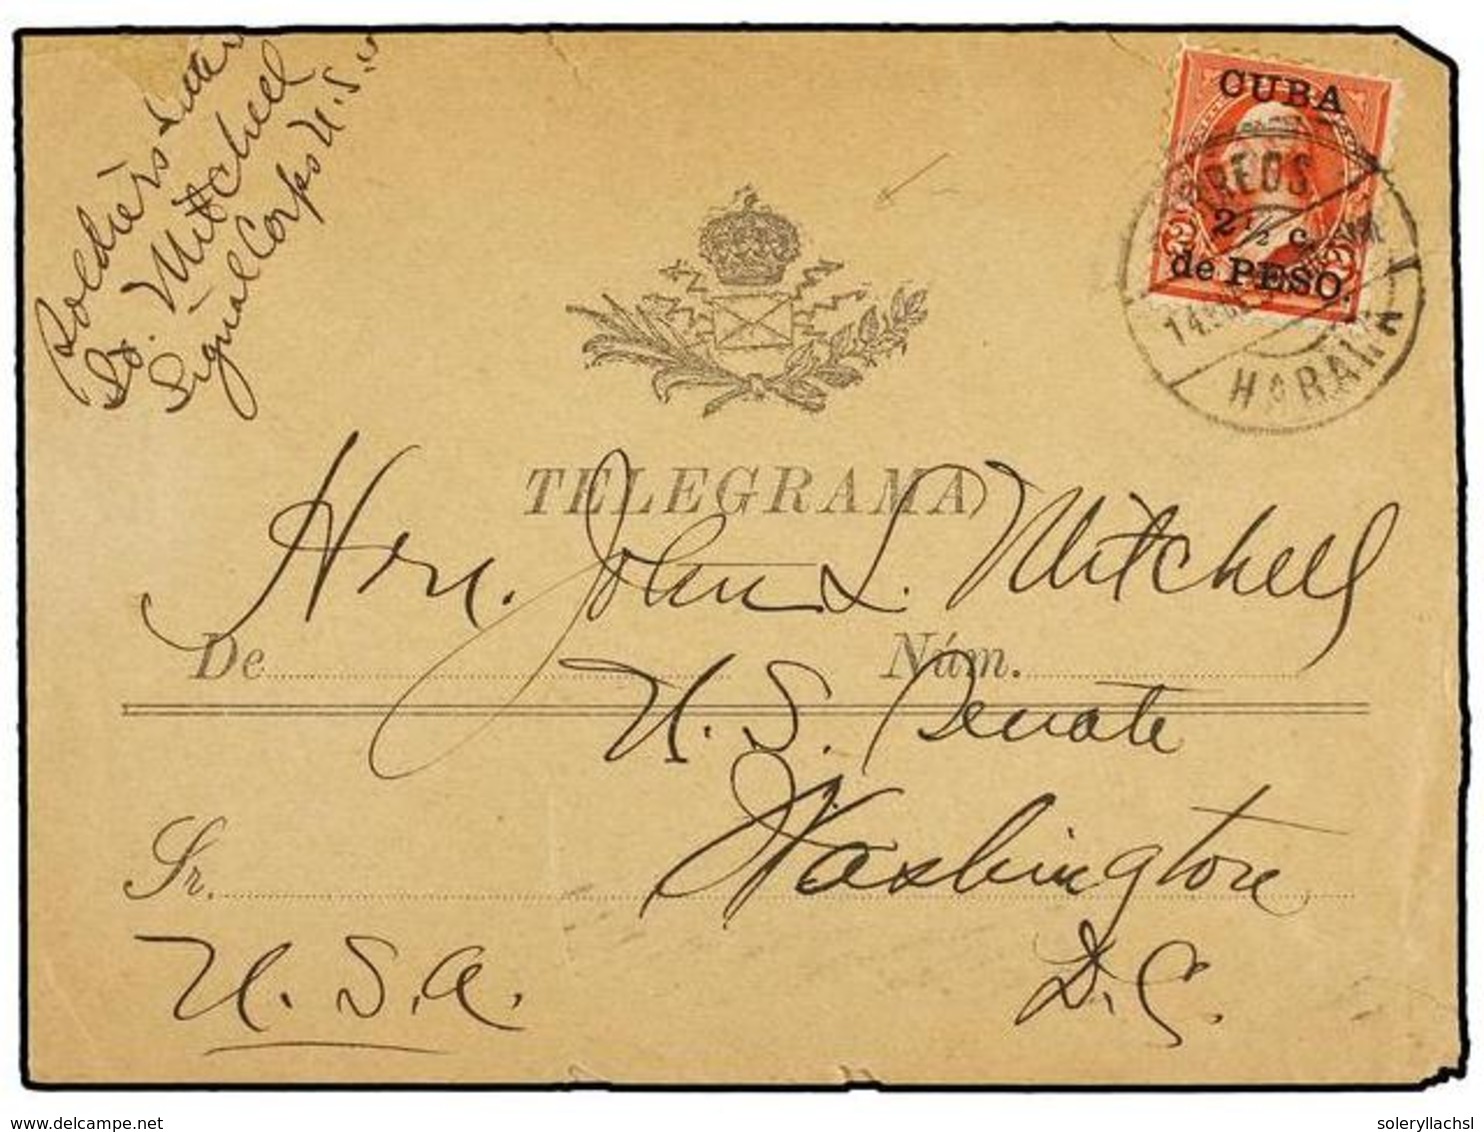 Soldier's Letter
Lt. Mitchell
Signal Corps U.S.
CUBA
2 ½ c.
de PESO.
2 2
CORREOS
14
HABANA
TELEGRAMA
Hon. John L. Mitchell
De Núm.
U. S. Senate
Sr. Washington
U. S. A. D. C.
delcampe.net
soleryllachsl